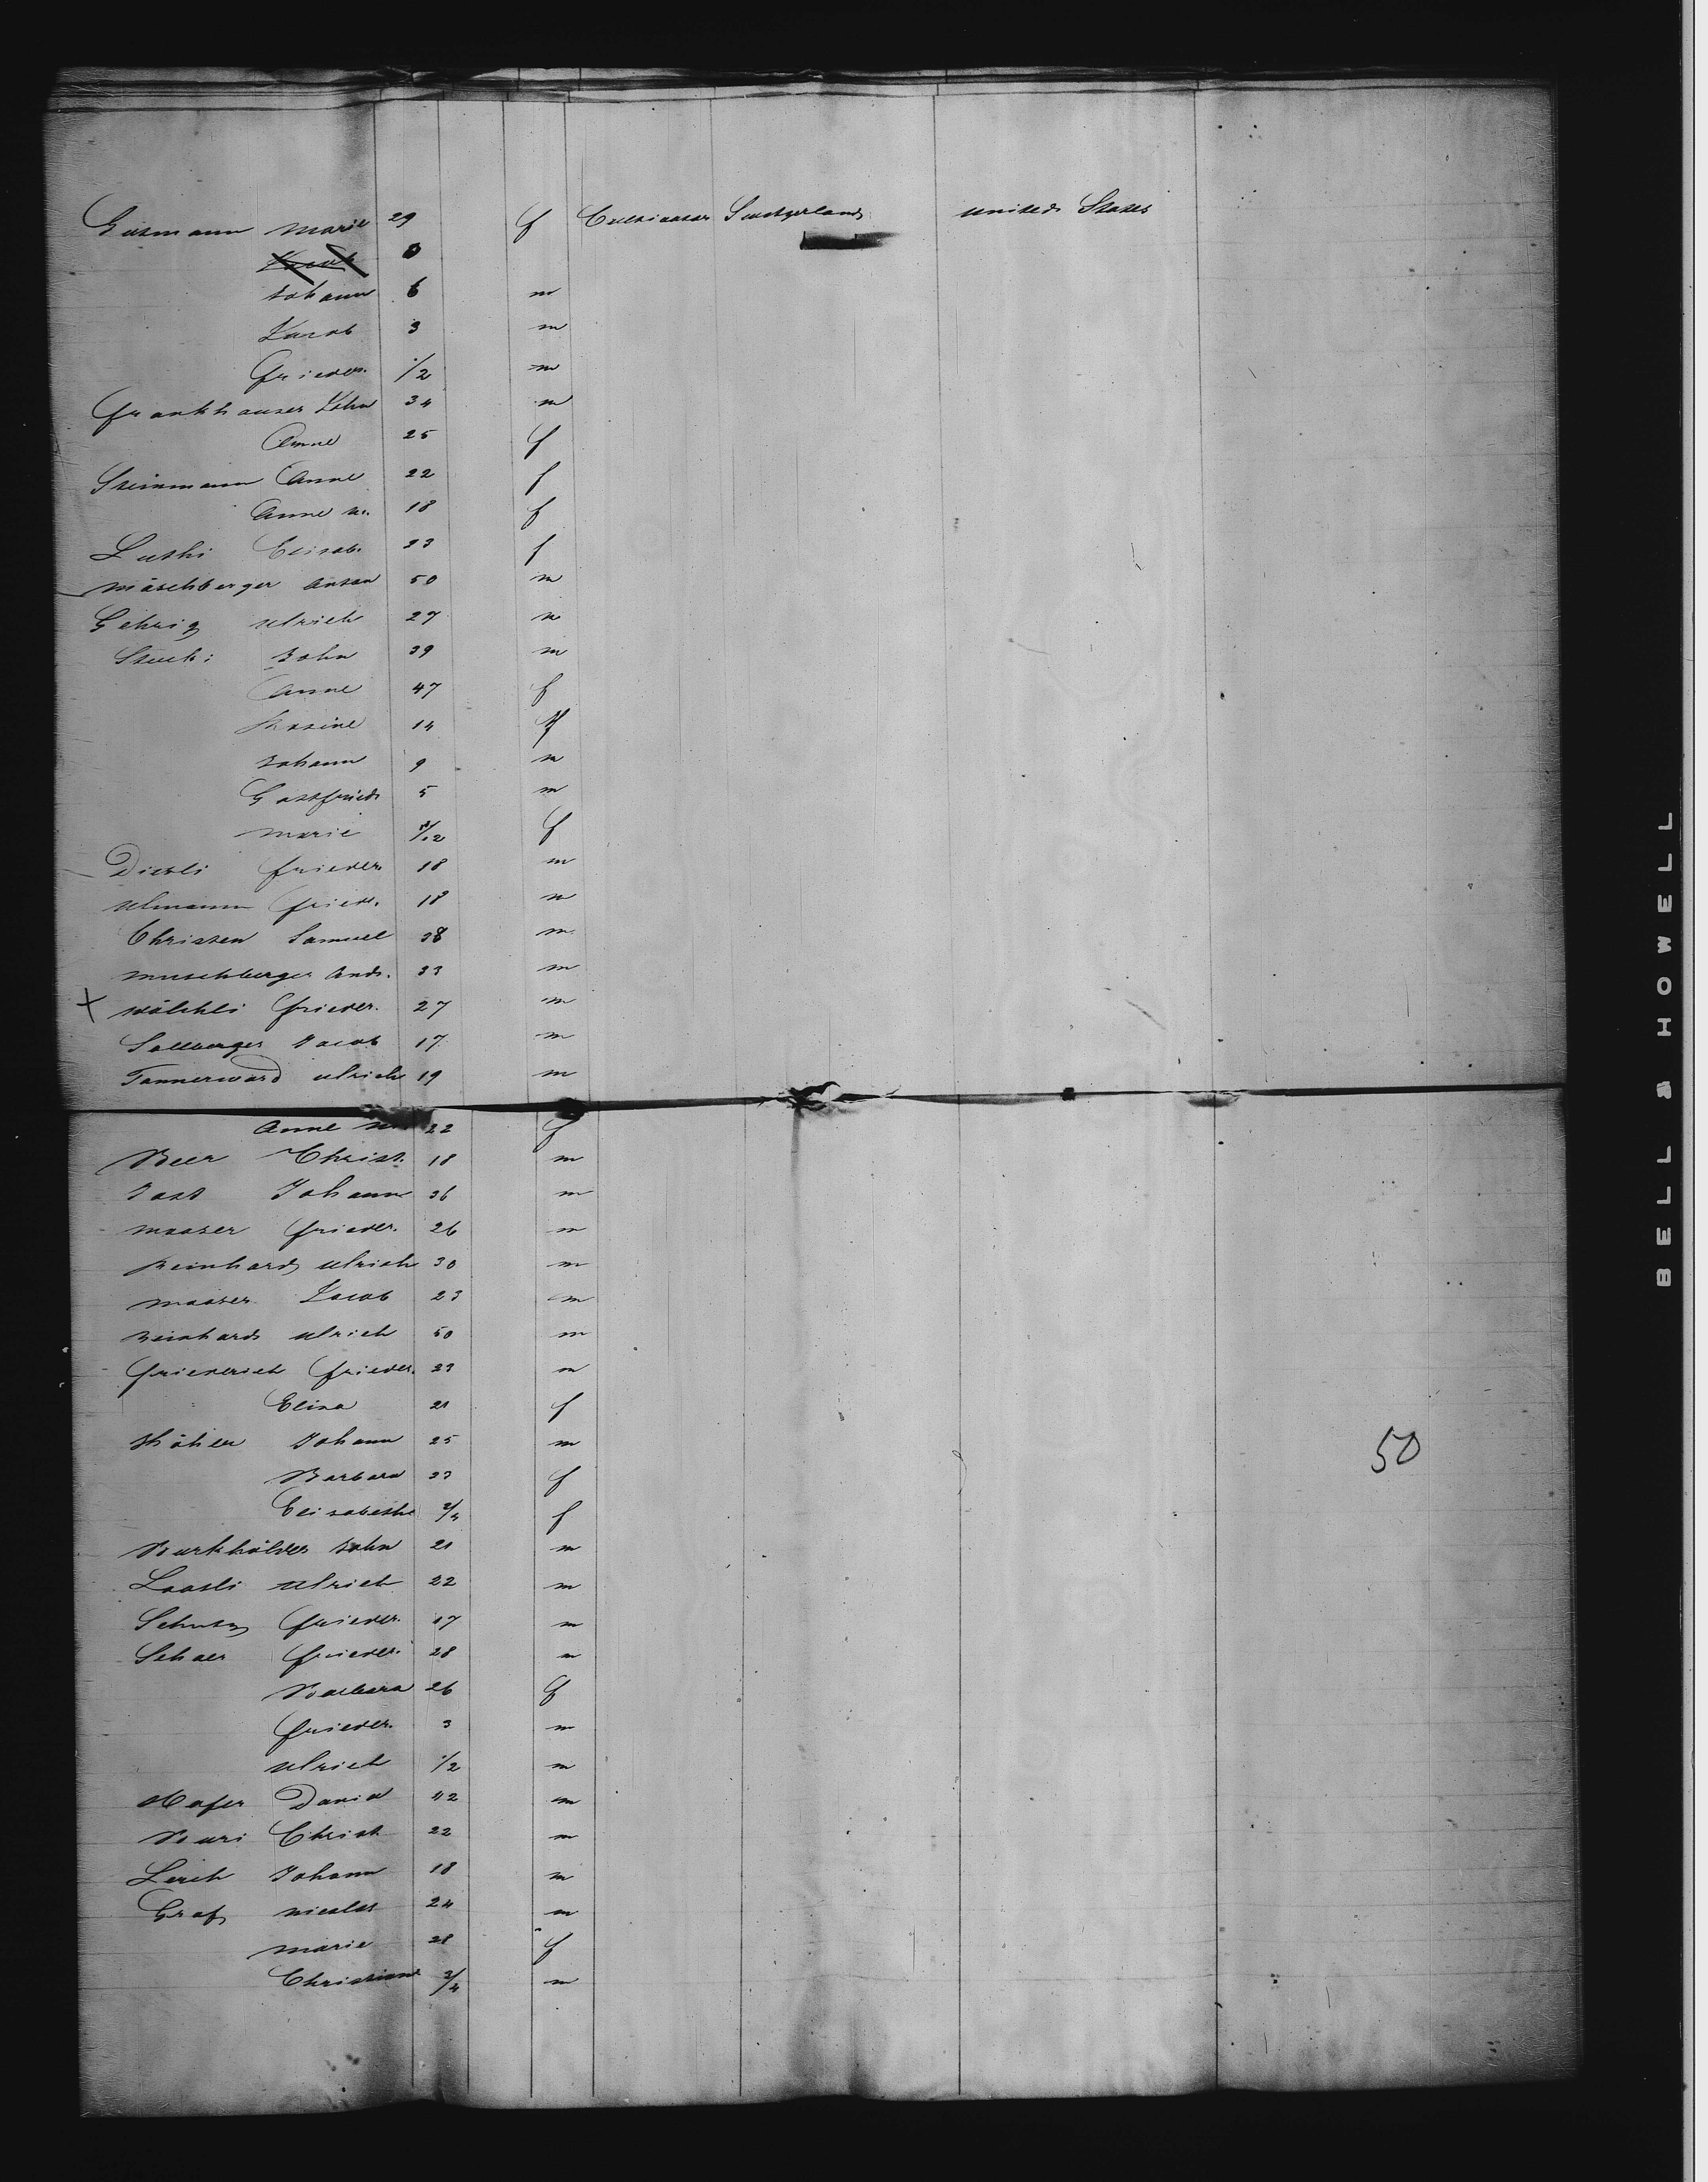 Gutmann Marie 29 f Cultivator Switzerland united States
Jacob 0
Johann 6 m
Jacob 3 m
frieder. 1/2 m
frankhauser John 34 m
Anne 25 f
Steinmann Anne 22 f
Anne m. 18 f
Luthi Elisab. 23 f
Mäschberger Anton 50 m
Gehrig Ulrich 27 m
Stucki John 39 m
Anne 47 f
Rosine 14 f
Johann 9 m
Gottfried 5 m
Marie /12 f
Diesli frieder 18 m
Ulmann fried. 18 m
Christen Samuel 38 m
Muschberger And. 33 m
+ Wälchli frieder. 27 m
Sollberger Jacob 17 m
Tannerward Ulrich 19 m
Anne 22 f
Beer Christ. 18 m
Jost Johann 36 m
Mooser frieder. 26 m
Reinhard Ulrich 30 m
Mooser Jacob 23 m
Reinhard Ulrich 50 m
friederich frieder. 23 m
Elisa 21 f
Johann 25 m
Barbara 23 f
Elisabeth 3/4 f
50
Burkhälder John 21 m
Loosli Ulrich 22 m
Schutz frieder. 17 m
Schaer frieder. 28 m
Barbara 26 f
frieder. 3 m
Ulrich 1/2 m
Hofer David 42 m
Buri Christ 22 m
Lerch Johann 18 m
Graf Nicolas 24 m
Marie 28 f
Christian 3/4 m
BELL & HOWELL